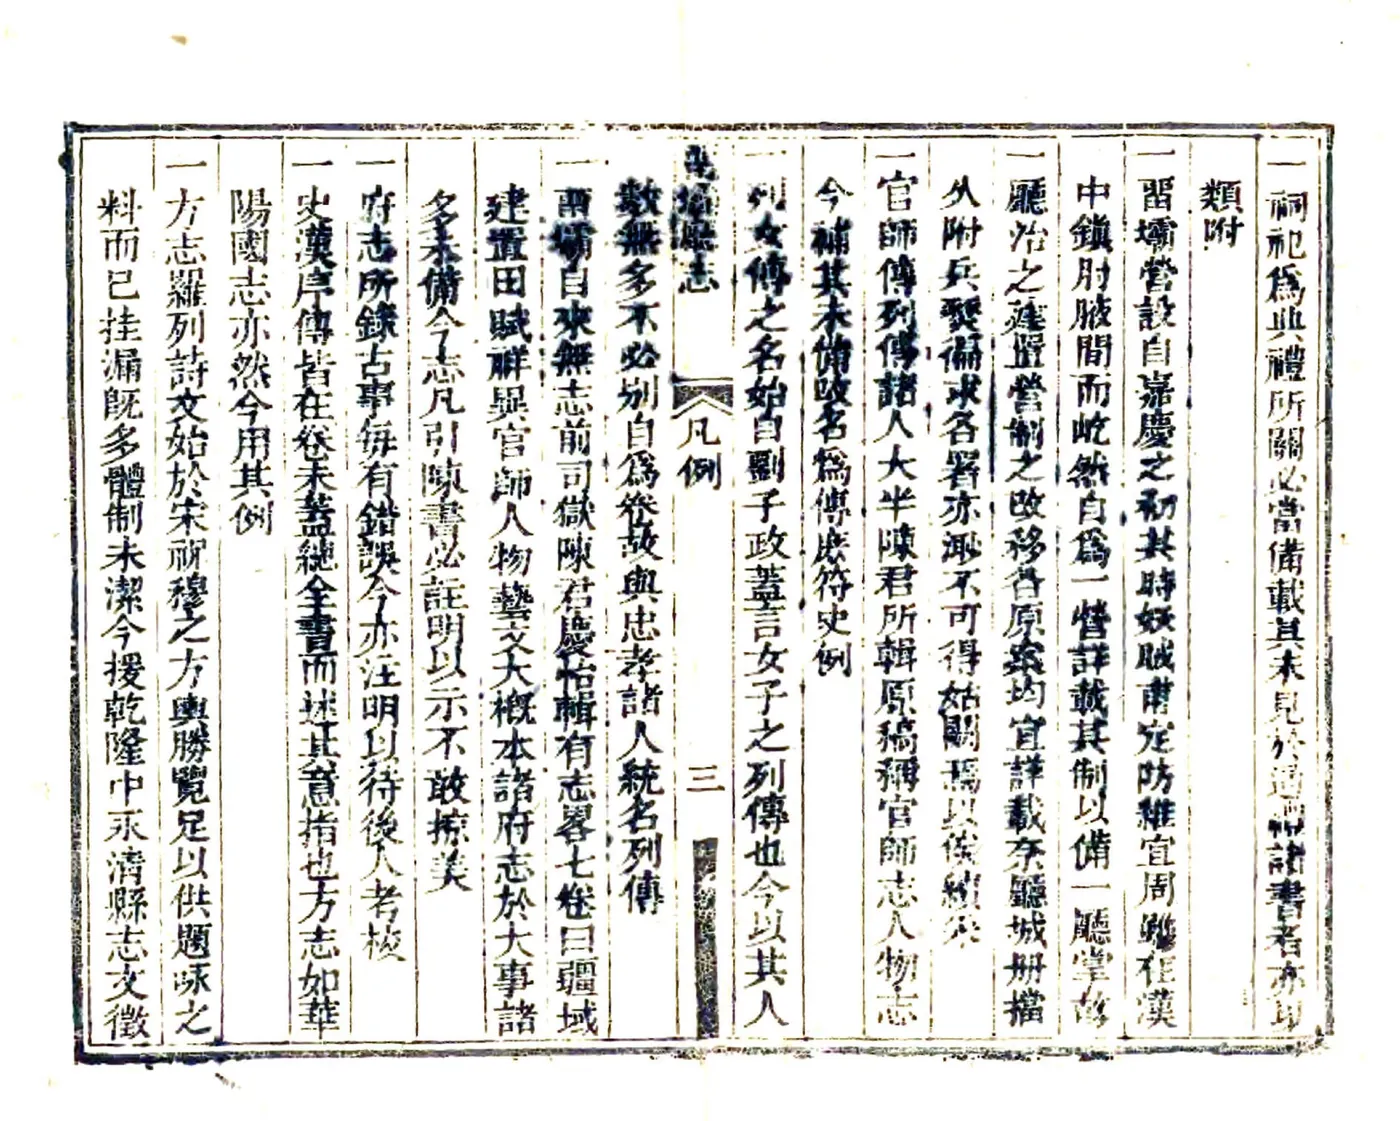 一祠祀爲典禮所關必當備載其未見於通禮諸書者亦以
類附
一留壩營設自嘉慶之初其時妖賊甫定防維宜周雖在漢
中鎮肘腋間而屹然自爲一營詳載其制以備一廳掌故
一廳治之建置營制之改移各原案均宜詳載奈廳城册檔
久附兵燹徧求各署亦渺不可得姑闕焉以俟續采
一官師傳列傳諸人大半陳君所輯原稿稱官師志人物志
今補其未備改名爲傳庶符史例
一列女傳之名始自劉子政蓋言女子之列傳也今以其人
留壩廳志
凡例
三
數無多不必别自爲卷故與忠孝諸人統名列傳
一留壩自來無志前司獄陳君慶怡輯有志畧七卷曰疆域
建置田賦祥異官師人物藝文大概本諸府志於大事諸
多未備今志凡引陳書必註明以示不敢掠美
一府志所錄古事每有錯誤今亦注明以待後人考核
一史漢序傳皆在卷末蓋總全書而述其意指也方志如華
陽國志亦然今用其例
一方志羅列詩文始於宋祝穆之方輿勝覽足以供題咏之
料而已挂漏既多體制未潔今援乾隆中永清縣志文徵